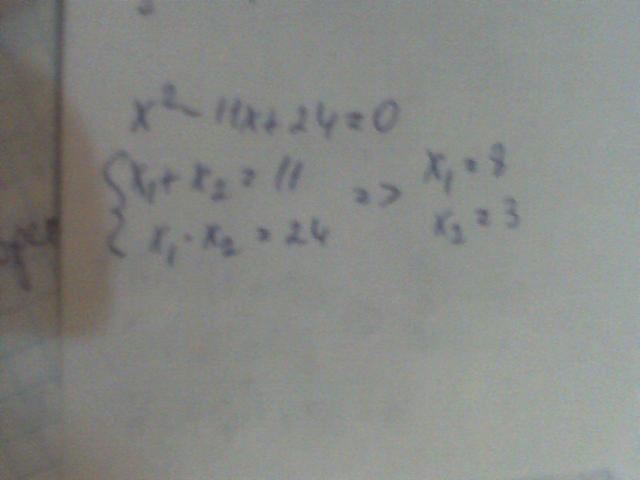 x² - 11x + 24 = 0
{ x₁ + x₂ = 11
x₁ · x₂ = 24
=> x₁ = 8
x₂ = 3